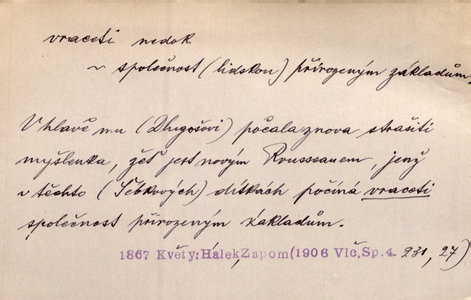 vraceti nedok
~ společnost (lidskou) přirozeným základům.
V hlavě mu (Dlugošovi) počala znova strašiti
myšlenka, žeť jest novým Rousseauem, jenž
v těchto (Sčókových) dítkách počíná vraceti
společnost přirozeným základům.
1867 Květy; Hálek, Zapom (1906 Vlč, Sp. 4. 231, 27)